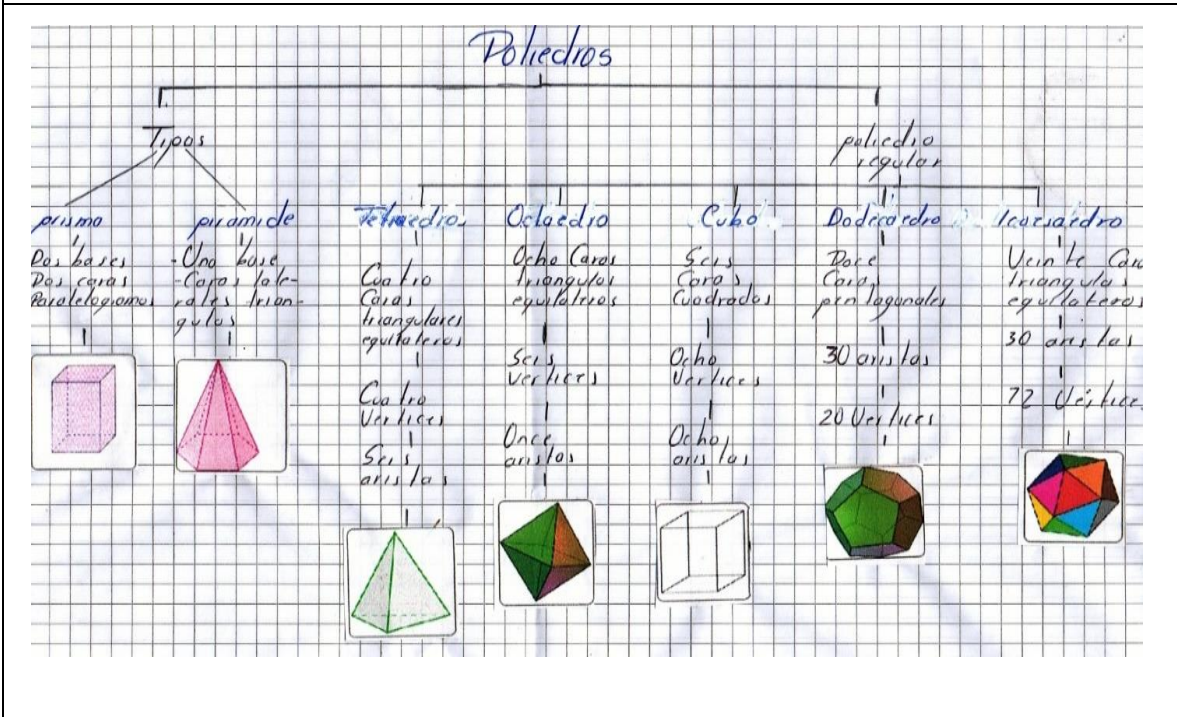 Poliedros
Tipos
poliedro
regular
prisma
Dos bases
Dos caras
Paralelogramos
piramide
- Una base
- Caras late-
rales trian-
gulos
Tetraedro
Cuatro
Caras
triangulares
equilateros
Cuatro
Vertices
Seis
aristas
Octaedro
Ocho Caras
triangulos
equilateros
Seis
vertices
Once
aristas
Cubo
Seis
Caras
Cuadradas
Ocho
Vertices
Ocho
aristas
Dodecaedro
Doce
Caras
pentagonales
30 aristas
20 Vertices
Icosaedro
Veinte Cara
triangulas
equilateros
30 aristas
Vértice